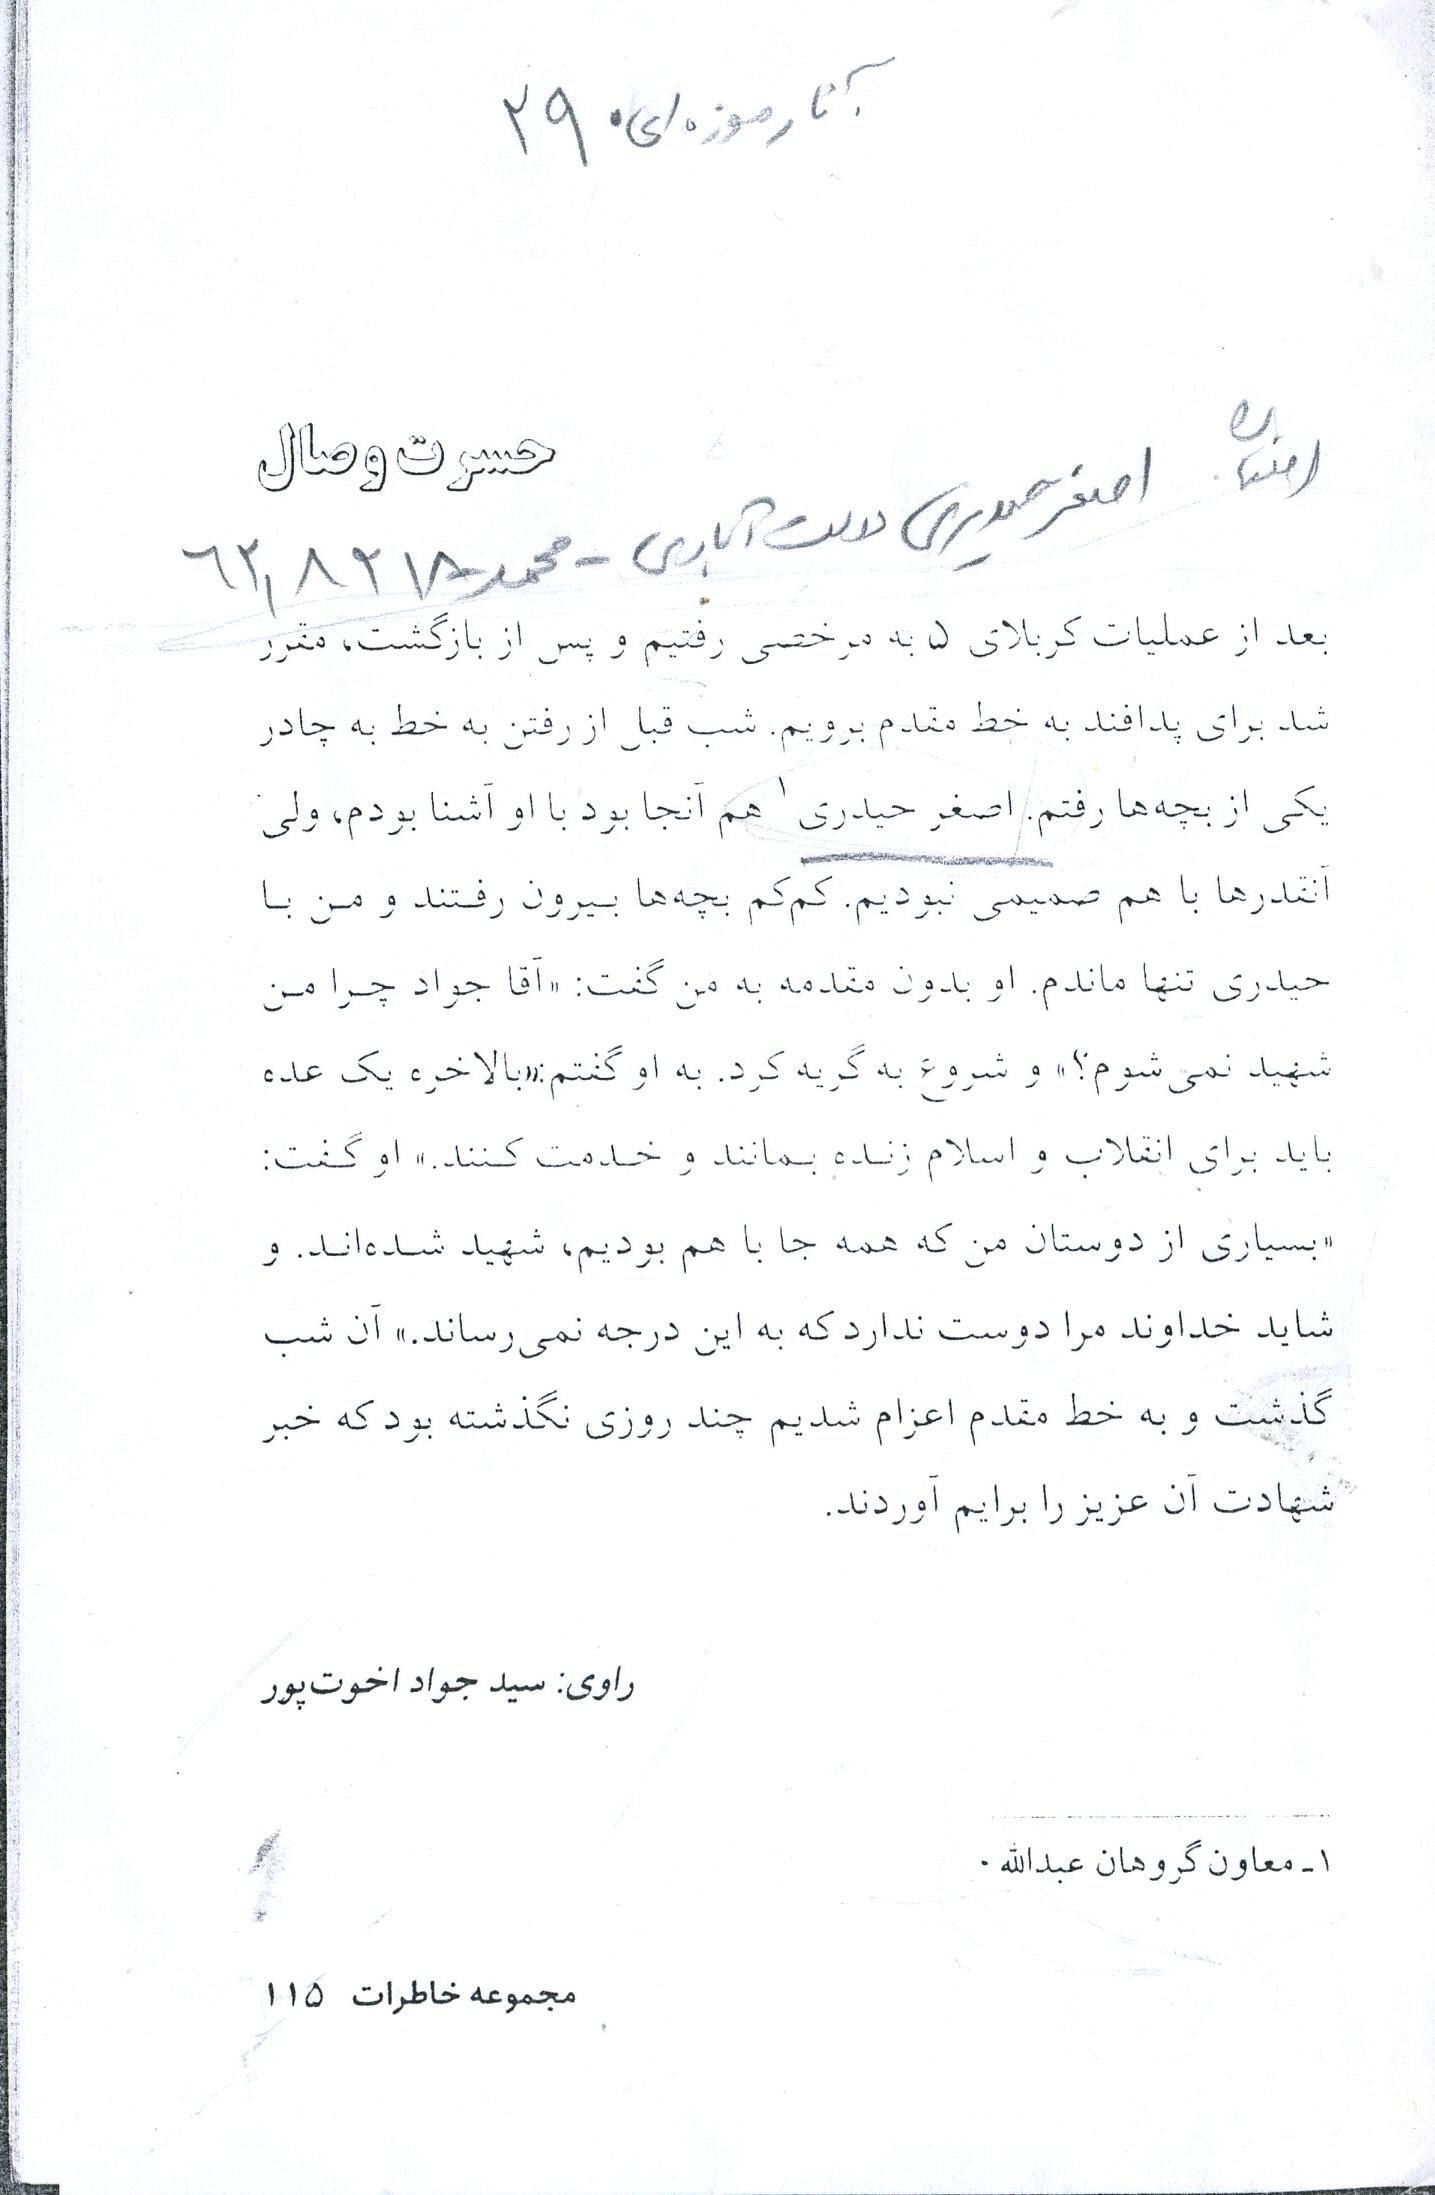 آثار موزه‌ای ۲۹۰
حسرت وصال
اصغر حیدری دولت آبادی - محمد -
بعد از عملیات کربلای ۵ به مرخصی رفتیم و پس از بازگشت، مقرر
شد برای پدافند به خط مقدم برویم. شب قبل از رفتن به خط به چادر
یکی از بچه‌ها رفتم. اصغر حیدری۱ هم آنجا بود با او آشنا بودم، ولی
آنقدرها با هم صمیمی نبودیم. کم‌کم بچه‌ها بیرون رفتند و من با
حیدری تنها ماندم. او بدون مقدمه به من گفت: «آقا جواد چرا من
شهید نمی‌شوم؟» و شروع به گریه کرد. به او گفتم: «بالاخره یک عده
باید برای انقلاب و اسلام زنده بمانند و خدمت کنند.» او گفت:
«بسیاری از دوستان من که همه جا با هم بودیم، شهید شده‌اند. و
شاید خداوند مرا دوست ندارد که به این درجه نمی‌رساند.» آن شب
گذشت و به خط مقدم اعزام شدیم چند روزی نگذشته بود که خبر
شهادت آن عزیز را برایم آوردند.
راوی: سید جواد اخوت‌پور
۱ـ معاون گروهان عبدالله .
مجموعه خاطرات ۱۱۵